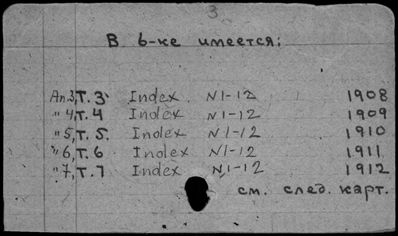 3
В б-ке имеется:
An.3, Т. 3 Index N1-12 1908
" 4, Т. 4 Index N1-12 1909
" 5, Т. 5. Index N1-12 1910
" 6, Т. 6 Index N1-12 1911
" 7, Т. 7 Index N1-12 1912
см. след. карт.